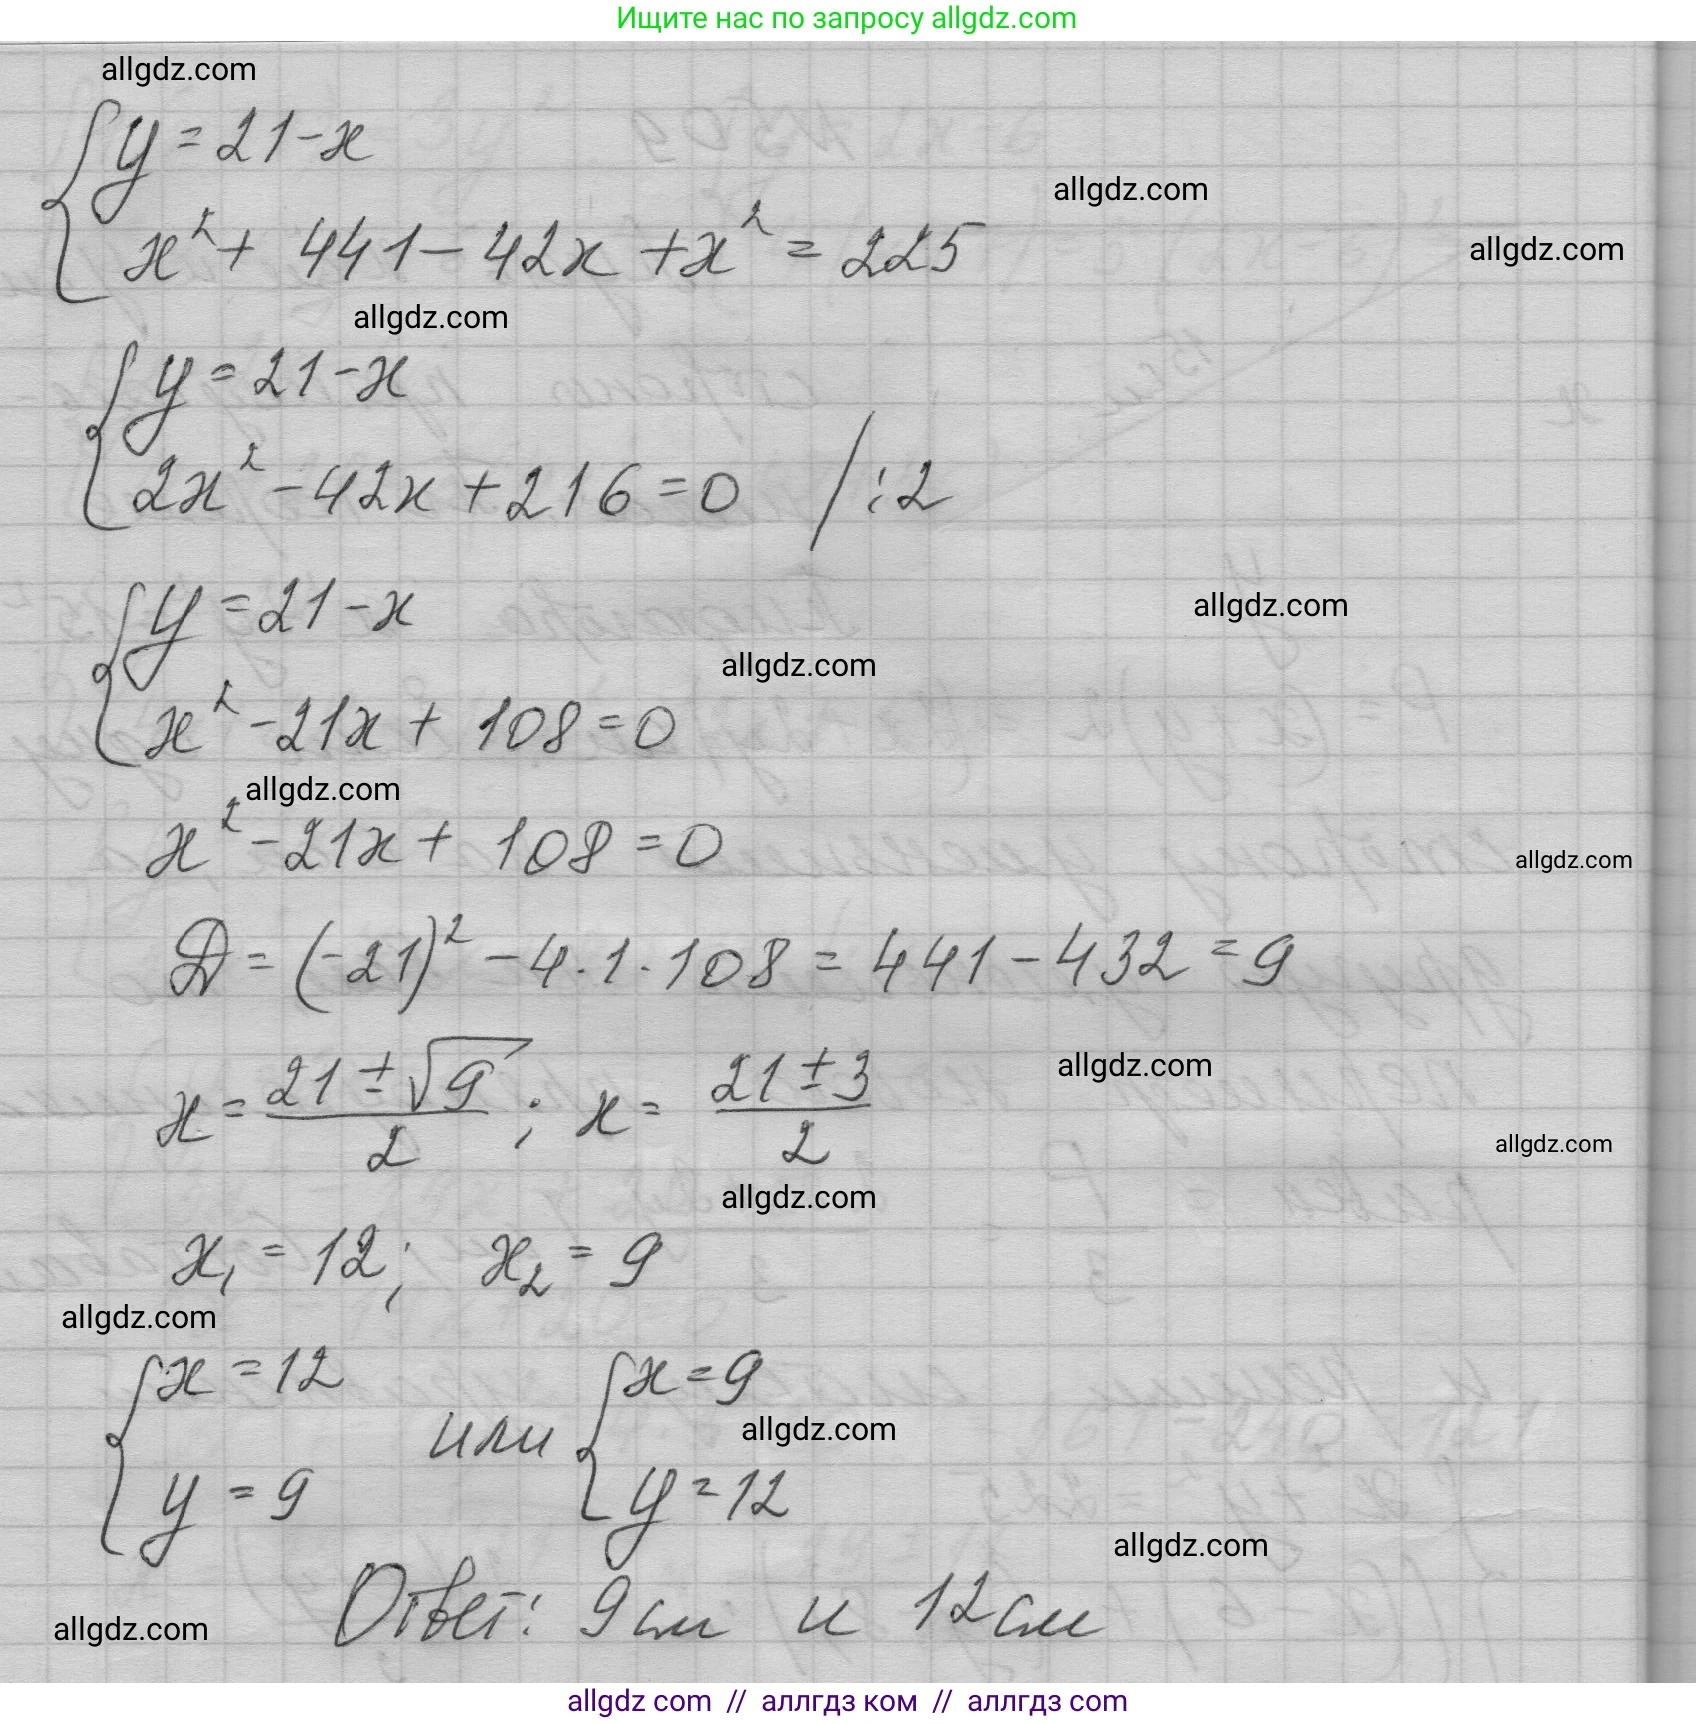 Ищите нас по запросу allgdz.com
allgdz.com
y = 21 - x
allgdz.com
x² + 441 - 42x + x² = 225
allgdz.com
allgdz.com
y = 21 - x
2x² - 42x + 216 = 0 / : 2
y = 21 - x
allgdz.com
allgdz.com
x² - 21x + 108 = 0
allgdz.com
x² - 21x + 108 = 0
allgdz.com
Д = (-21)² - 4 · 1 · 108 = 441 - 432 = 9
x = (21 ± √9)/2 ; x = (21 ± 3)/2
allgdz.com
allgdz.com
allgdz.com
x₁ = 12; x₂ = 9
allgdz.com
x = 12 или x = 9
allgdz.com
y = 9 y = 12
allgdz.com
Ответ: 9 см и 12 см
allgdz.com
allgdz com // аллгдз ком // аллгдз com